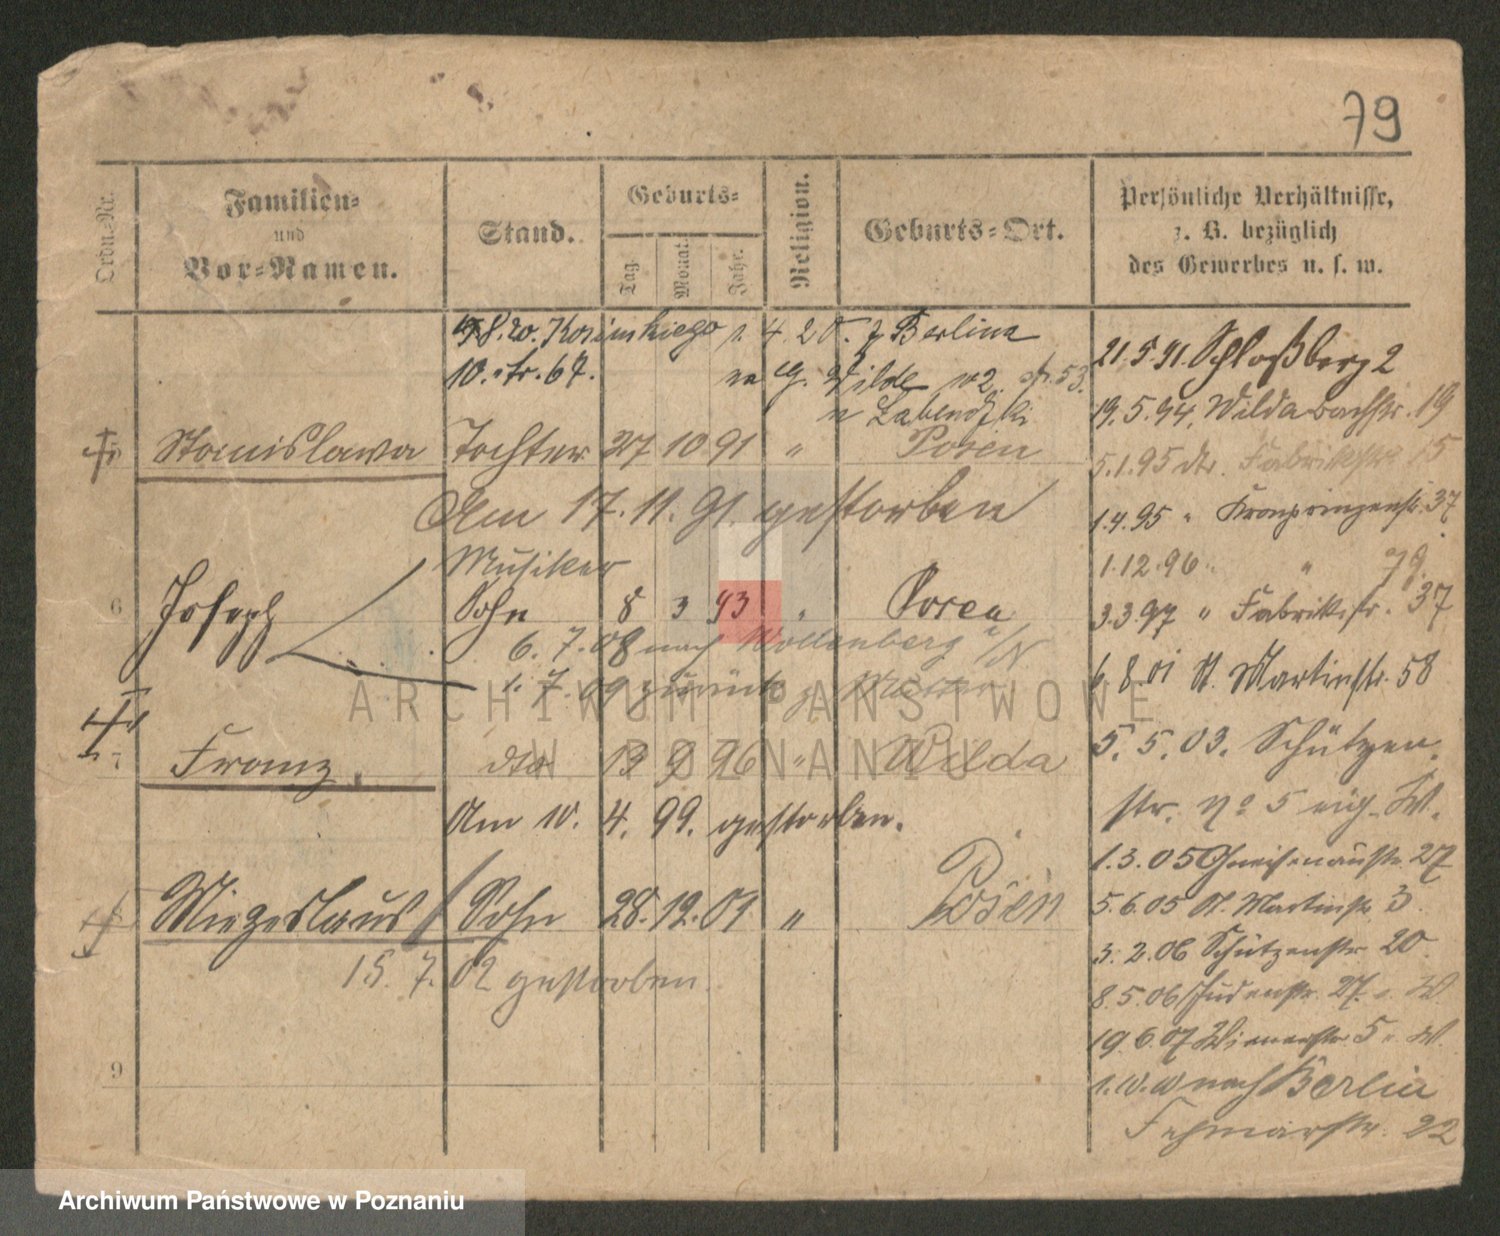 79
Ordn.-Nr.
Familien-
und
Vor-Namen.
Stand.
Geburts-
Tag.
Monat.
Jahr.
Religion.
Geburts-Ort.
Persönliche Verhältnisse,
z. B. bezüglich
des Gewerbes u. s. w.
8.20. Kosinskiego 1. 4. 20. z Berlina
10. str. 67. na G. Wilde 53.
Stanislawa Tochter 27 10 91 " Posen
Am 17. 11. 91. gestorben
Musiker
6 Joseph Sohn 8 3 93 " Posen
6. 7. 08 nach Wollenberg
1. 7. 09 zurück
7 Franz. dto 13 9 96 " Wilda
Am 10. 4. 99. gestorben.
Miezeslaus Sohn 28. 12. 01 " Posen
15. 7. 02 gestorben.
9
21. 5 91. Schloßberg 2
19. 5. 94. Wilda Bachstr. 19
5. 1. 95 dto. Fabrikstr. 15
1. 4. 95 " Kronprinzenstr. 37
1. 12. 96 " " 79.
3. 3. 97 " Fabrikstr. 37
6. 8. 01 St. Martinstr. 58
5. 5. 03. Schützen-
str. No 5
1. 3. 05 Gneisenaustr. 27
5. 6. 05 St. Martinstr. 3
3. 2. 06 Schützenstr. 20.
8. 5. 06 Judenstr. 27.
19. 6. 07 Wienerstr. 5
nach Berlin
Fehmarstr. 22
ARCHIWUM PAŃSTWOWE
W POZNANIU
Archiwum Państwowe w Poznaniu